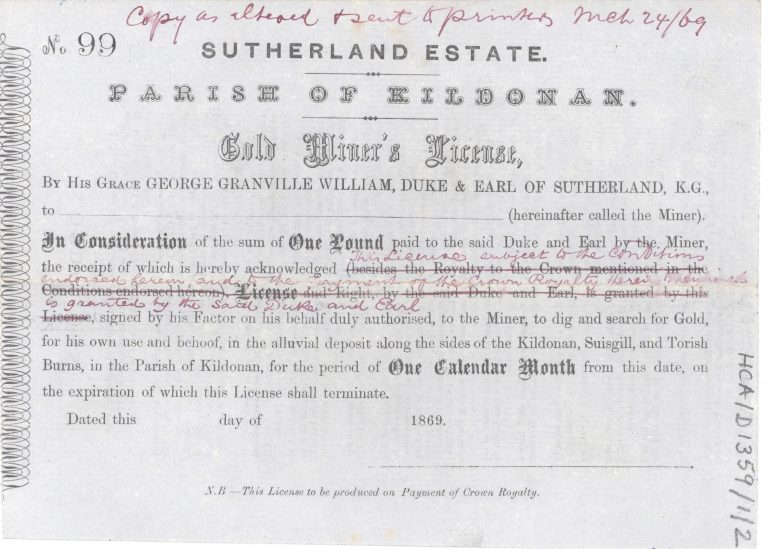 Copy as altered & sent to printers Mch 24/69
No. 99
SUTHERLAND ESTATE.
PARISH OF KILDONAN.
Gold Miner's License,
BY HIS GRACE GEORGE GRANVILLE WILLIAM, DUKE & EARL OF SUTHERLAND, K.G.,
to (hereinafter called the Miner).
In Consideration of the sum of One Pound paid to the said Duke and Earl by the Miner,
This License subject to the Conditions
the receipt of which is hereby acknowledged (besides the Royalty to the Crown mentioned in the
endorsed hereon, and to the payment of the Crown Royalty therein mentioned
Conditions endorsed hereon) License and Right, by the said Duke and Earl, is granted by this
is granted by the said Duke and Earl
License, signed by his Factor on his behalf duly authorised, to the Miner, to dig and search for Gold,
for his own use and behoof, in the alluvial deposit along the sides of the Kildonan, Suisgill, and Torish
Burns, in the Parish of Kildonan, for the period of One Calendar Month from this date, on
the expiration of which this License shall terminate.
Dated this day of 1869.
N.B.—This License to be produced on Payment of Crown Royalty.
HCA/D1359/1/2